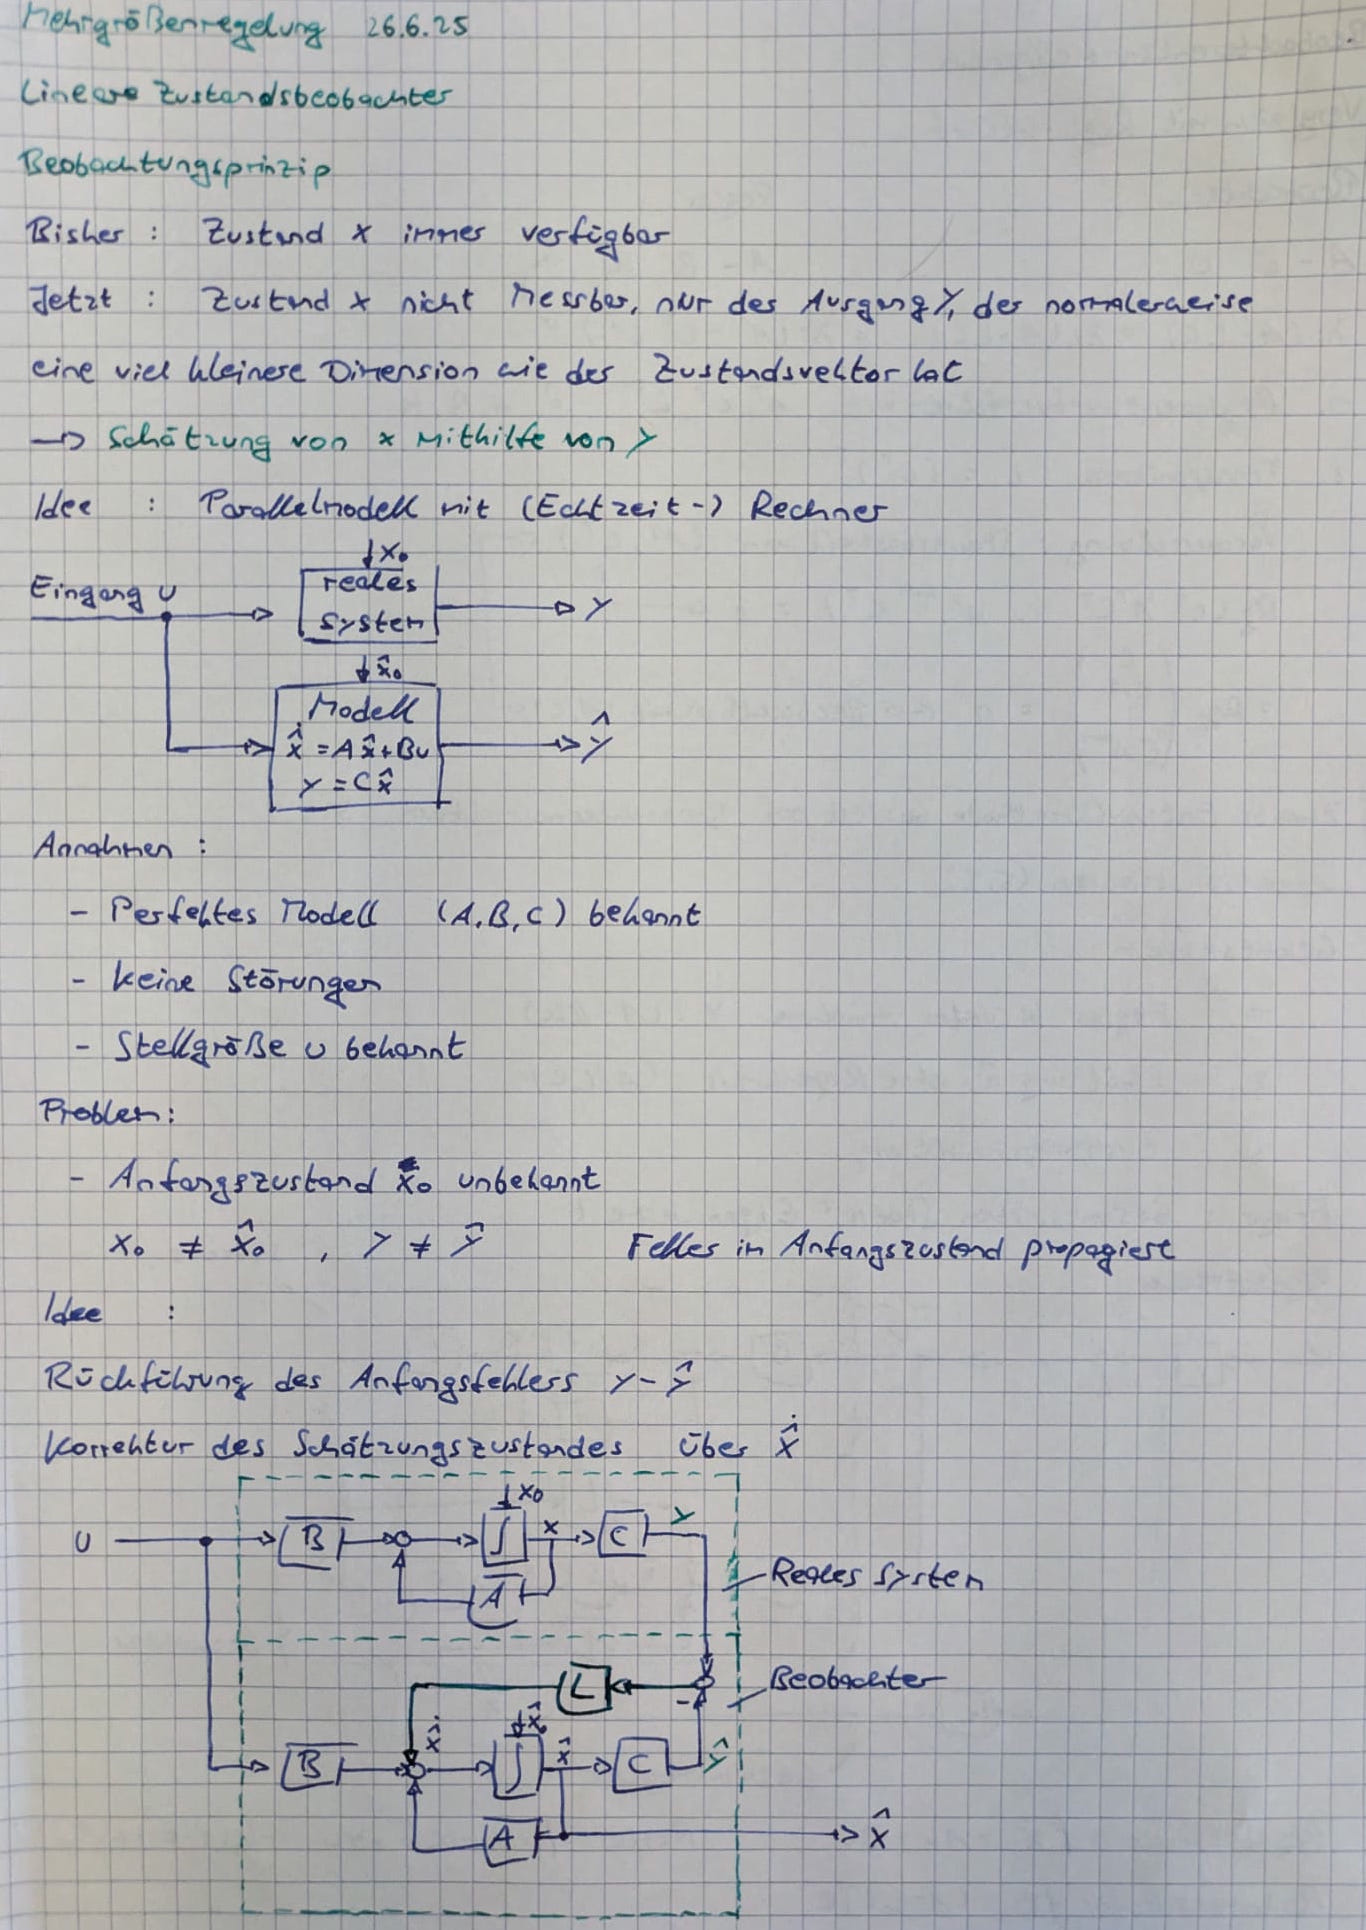 Mehrgrößenregelung 26.6.25
Lineare Zustandsbeobachter
Beobachtungsprinzip
Bisher : Zustand x immer verfügbar
Jetzt : Zustand x nicht Messbar, nur der Ausgang y, der normalerweise
eine viel kleinere Dimension wie der Zustandsvektor hat
→ Schätzung von x Mithilfe von y
Idee : Parallelmodell mit (Echtzeit-) Rechner
↓ x₀
Eingang u
reales
system
y
↓ x̂₀
Modell
x̂̇ = A x̂ + Bu
y = C x̂
ŷ
Annahmen :
- Perfektes Modell (A, B, C) bekannt
- keine Störungen
- Stellgröße u bekannt
Problem:
- Anfangszustand x₀ unbekannt
x₀ ≠ x̂₀ , y ≠ ŷ Fehler im Anfangszustand propagiert
Idee :
Rückführung des Anfangsfehlers y - ŷ
Korrektur des Schätzungszustandes über x̂̇
↓ x₀
u B ∫ x C y
A
Reales System
L
Beobachter
-
x̂̇ x̂₀
B ∫ x̂ C ŷ
A
x̂